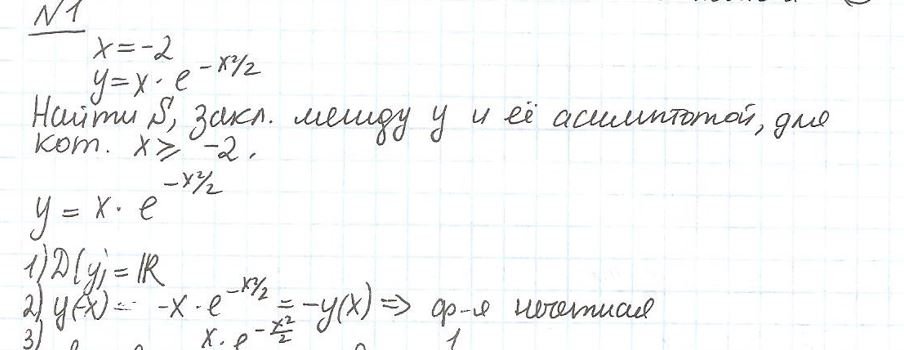 №1
x = -2
y = x · e^{-x²/2}
Найти S, закл. между y и её асимптотой, для
кот. x ⩾ -2.
y = x · e^{-x²/2}
1) D(y) = ℝ
2) y(-x) = -x · e^{-x²/2} = -y(x) => ф-я нечетная
3) x · e^{-x²/2} 1